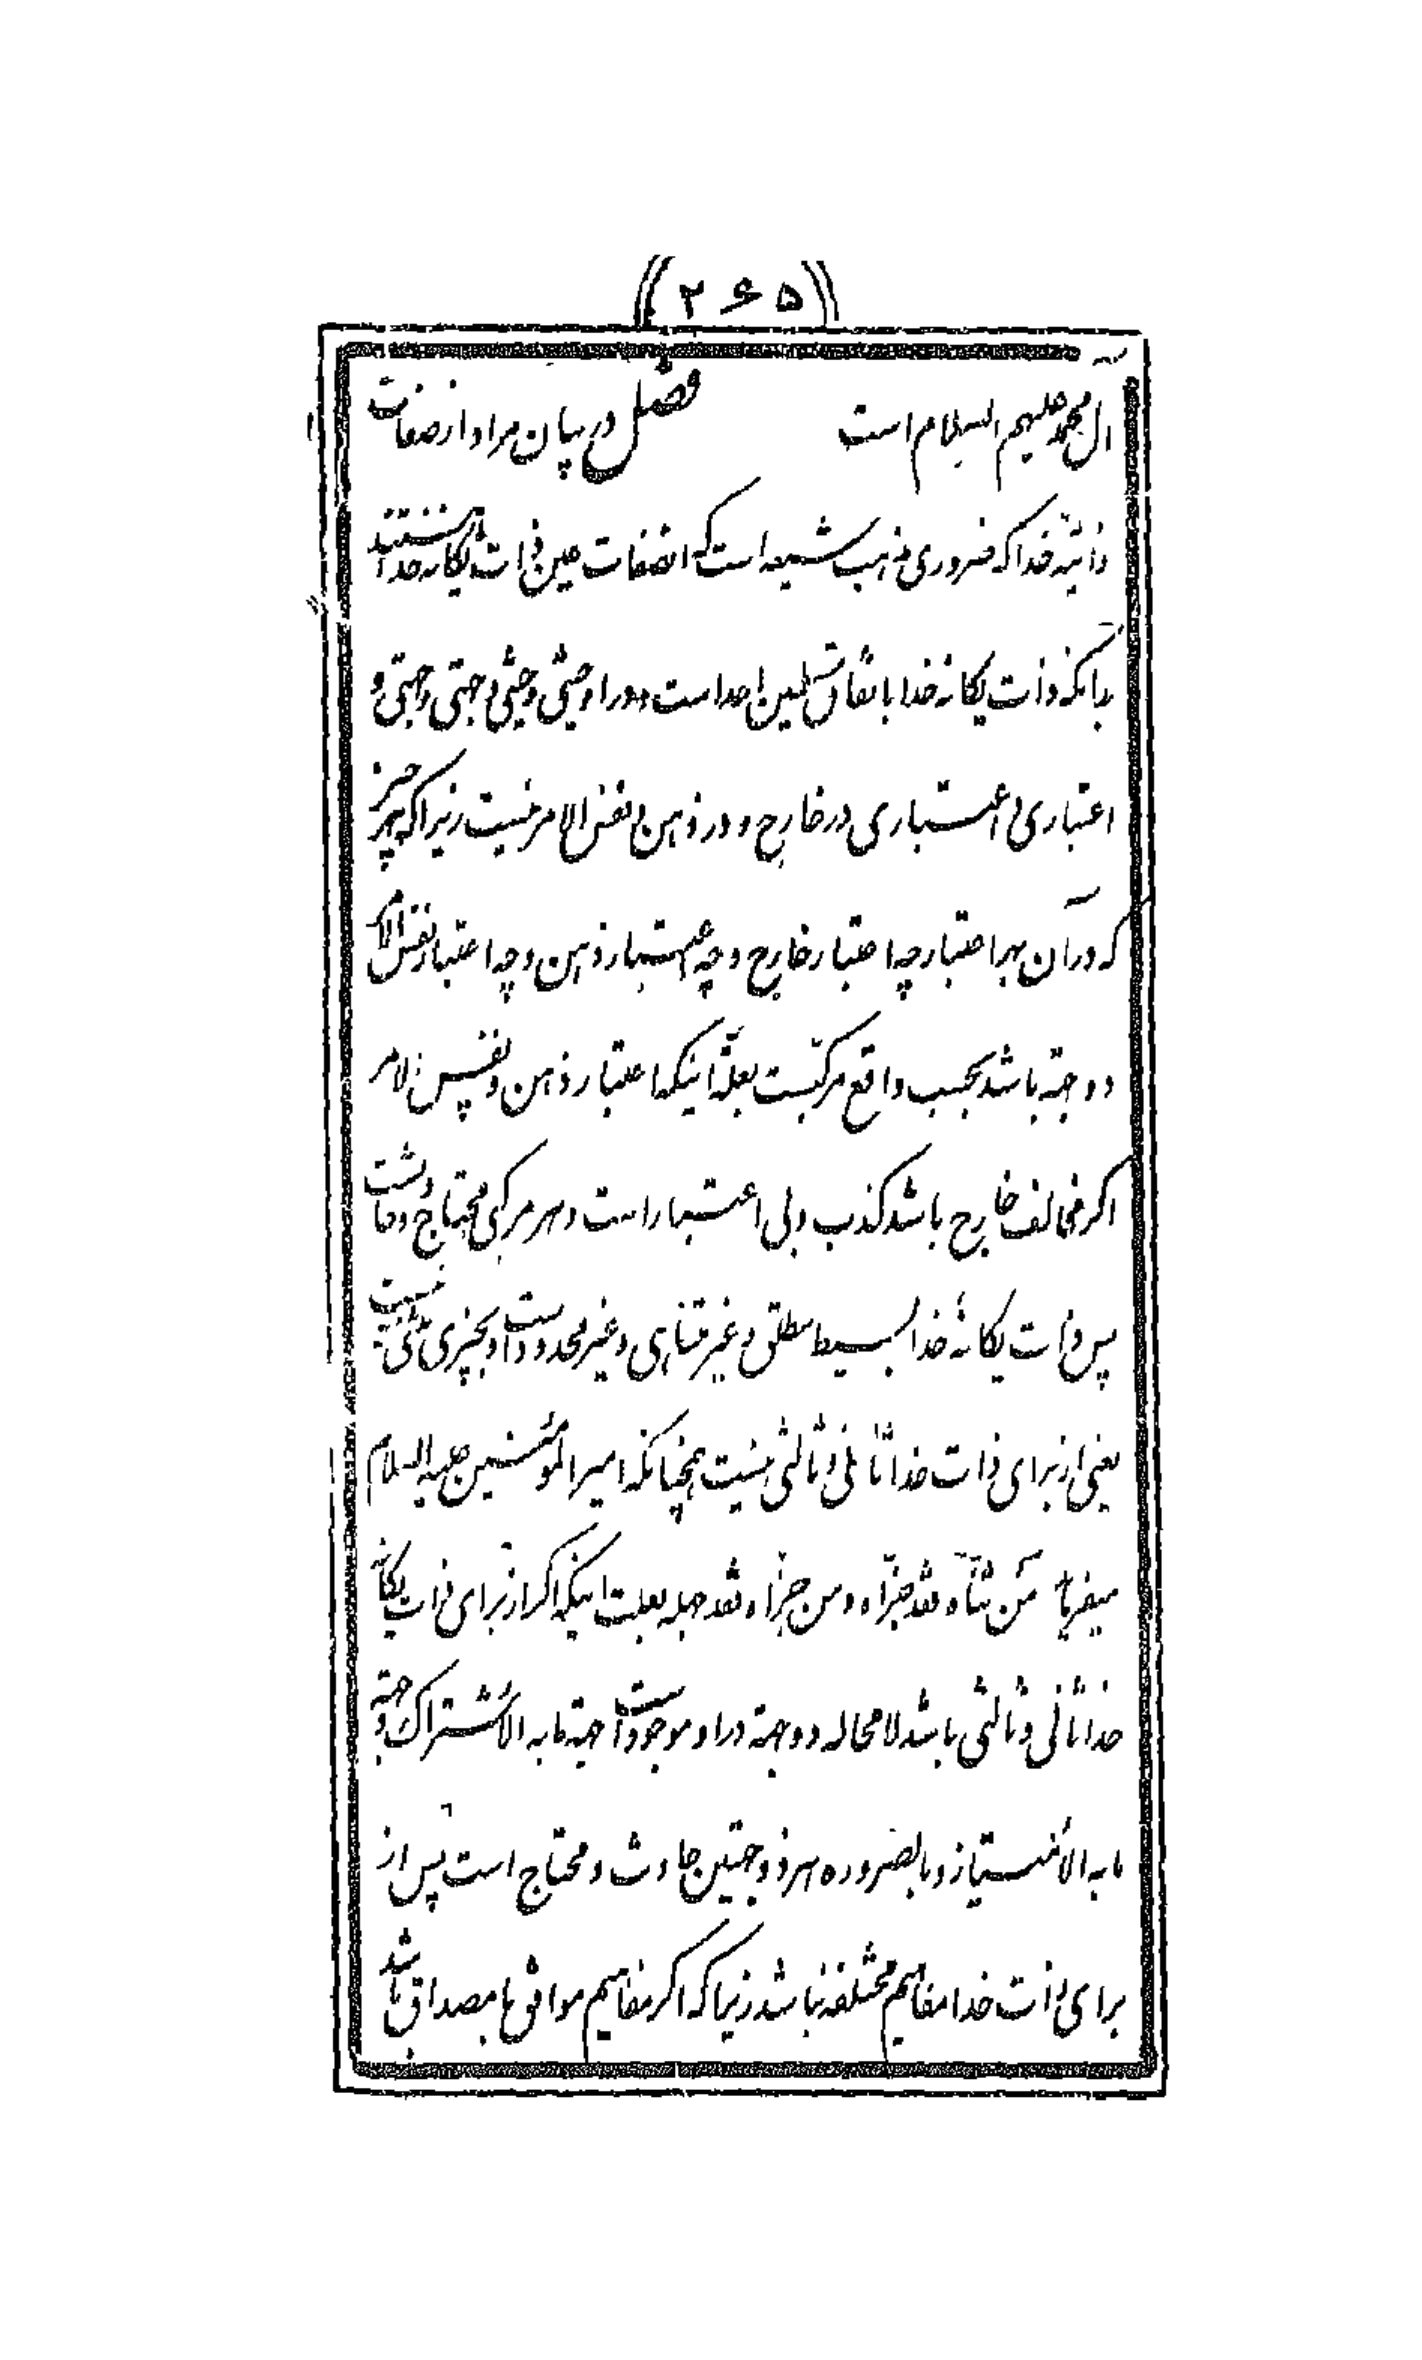 (۲۶۵)
آل محمد علیهم السلام است فصل در بیان مراد از صفات
ذاتیه خدا که ضروری مذهب شیعه است که انصفات عین ذات یکانه خدا هستند
بدانکه ذات یکانه خدا باتفاق مسلمین احد است و در او حیثی و حیثی و جهتی و جهتی و
اعتباری و اعتباری در خارج و در ذهن و نفس الامر نیست زیرا که هر چیز
که در آن بهر اعتبار چه اعتبار خارج و چه اعتبار ذهن و چه اعتبار نفس الامر
دو جهة باشد بحسب واقع مرکبست بعلة اینکه اعتبار ذهن و نفس الامر
اکر مخالف خارج باشد کذب و بی اعتبار است و هر مرکبی محتاج و حادثست
پس ذات یکانهٔ خدا بسیط مطلق و غیر متناهی و غیر محدود است و او بچیزی مثنی نیست
یعنی از برای ذات خدا ثانی و ثالثی نیست همچنانکه امیر المؤمنین علیه السلام
میفرماید من ثنّاه فقد جزّاه و من جزّاه فقد جهله بعلت اینکه اکر از برای ذات یکانه
خدا ثانی و ثالثی باشد لامحاله دو جهة در او موجود است جهة ما به الاشتراک و جهة
ما به الامتیاز و بالضروره هر ذو جهتین حادث و محتاج است پس از
برای ذات خدا مفاهیم مختلفه نباشد زیرا که اکر مفاهیم موافق با مصداق باشد